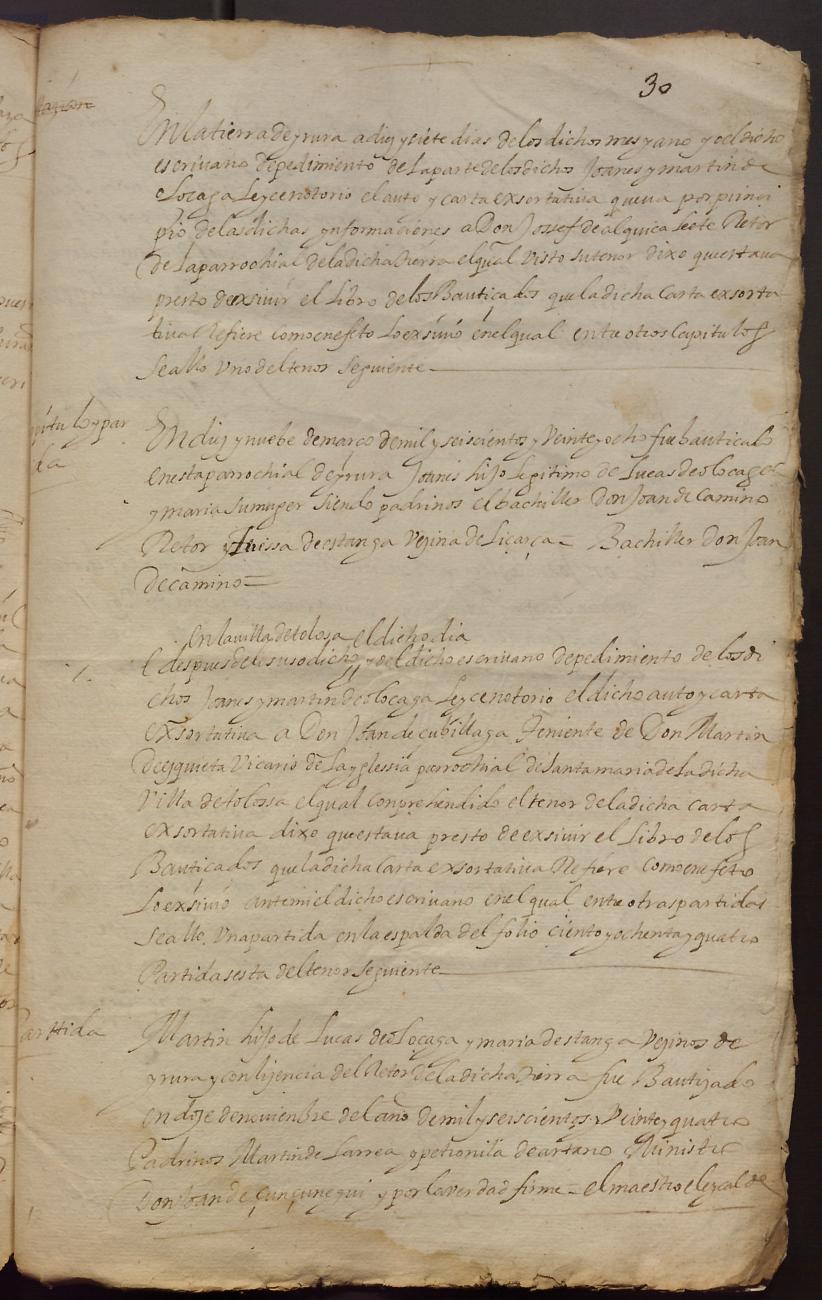 30
En la tierra de yrura a diez y siete dias de los dichos mes y año yo el dicho
escriuano de pedimiento de la parte de los dichos Joanes y martin de
olocaga ley e notorio el auto y carta exsortatiua que va por princi
pio de las dichas ynformaciones a Don Jossef de alquiça Retor
de la parrochial de la dicha tierra el qual visto su tenor dixo que estaua
presto de exsiuir el libro de los Bautiçados que la dicha carta exsorta
tiua Refiere como en efeto lo exsiuio en el qual entre otros capitulos
se allo vno del tenor seguiente
pitulo y par
da
En diez y nuebe de março de mil y seiscientos y Veinte y ocho fue bautiçado
en esta parrochial de yrura Joanes hijo legitimo de Lucas de olocaga
y maria su muger siendo padrinos el bachiller Don Joan de Camino
Retor y luissa de estanga Vezina de Liçarça = Bachiller Don Joan
de camino =
En la villa de tolosa el dicho dia
E despues de lo susodicho yo el dicho escriuano de pedimiento de los di
chos Joanes y martin de olocaga ley e notorio el dicho auto y carta
exsortatiua a Don Joan de cubillaga Teniente de Don Martin
de ezquieta Vicario de la yglessia parrochial de santa maria de la dicha
Villa de tolossa el qual conprehendido el tenor de la dicha carta
exsortatiua dixo que estaua presto de exsiuir el libro de los
Bautiçados que la dicha carta exsortatiua Refiere como en efeto
lo exsiuio ante mi el dicho escriuano en el qual entre otras partidas
se allo vna partida en la espalda del folio ciento y ochenta y quatro
Partida sesta del tenor seguiente
Parttida
Martin hijo de Lucas de oLoçaga y maria de stanga Vezinos de
yrura y con lizencia del Retor de la dicha tierra fue Bautizado
en doze de nouienbre del año de mil y seiscientos y Veinte y quatro
Padrinos Martin de Larrea y petronila de artano Ministro
Don Joan de çunçunegui y por la verdad firme = el maestro elezalde